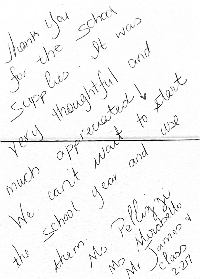 Thank you
for the school
supplies. It was
very thoughtful and
much appreciated!
We can't wait to start
the school year and use
them
Ms. Pellizzi
Ms. Mirabello
Mr. James &
Class
217